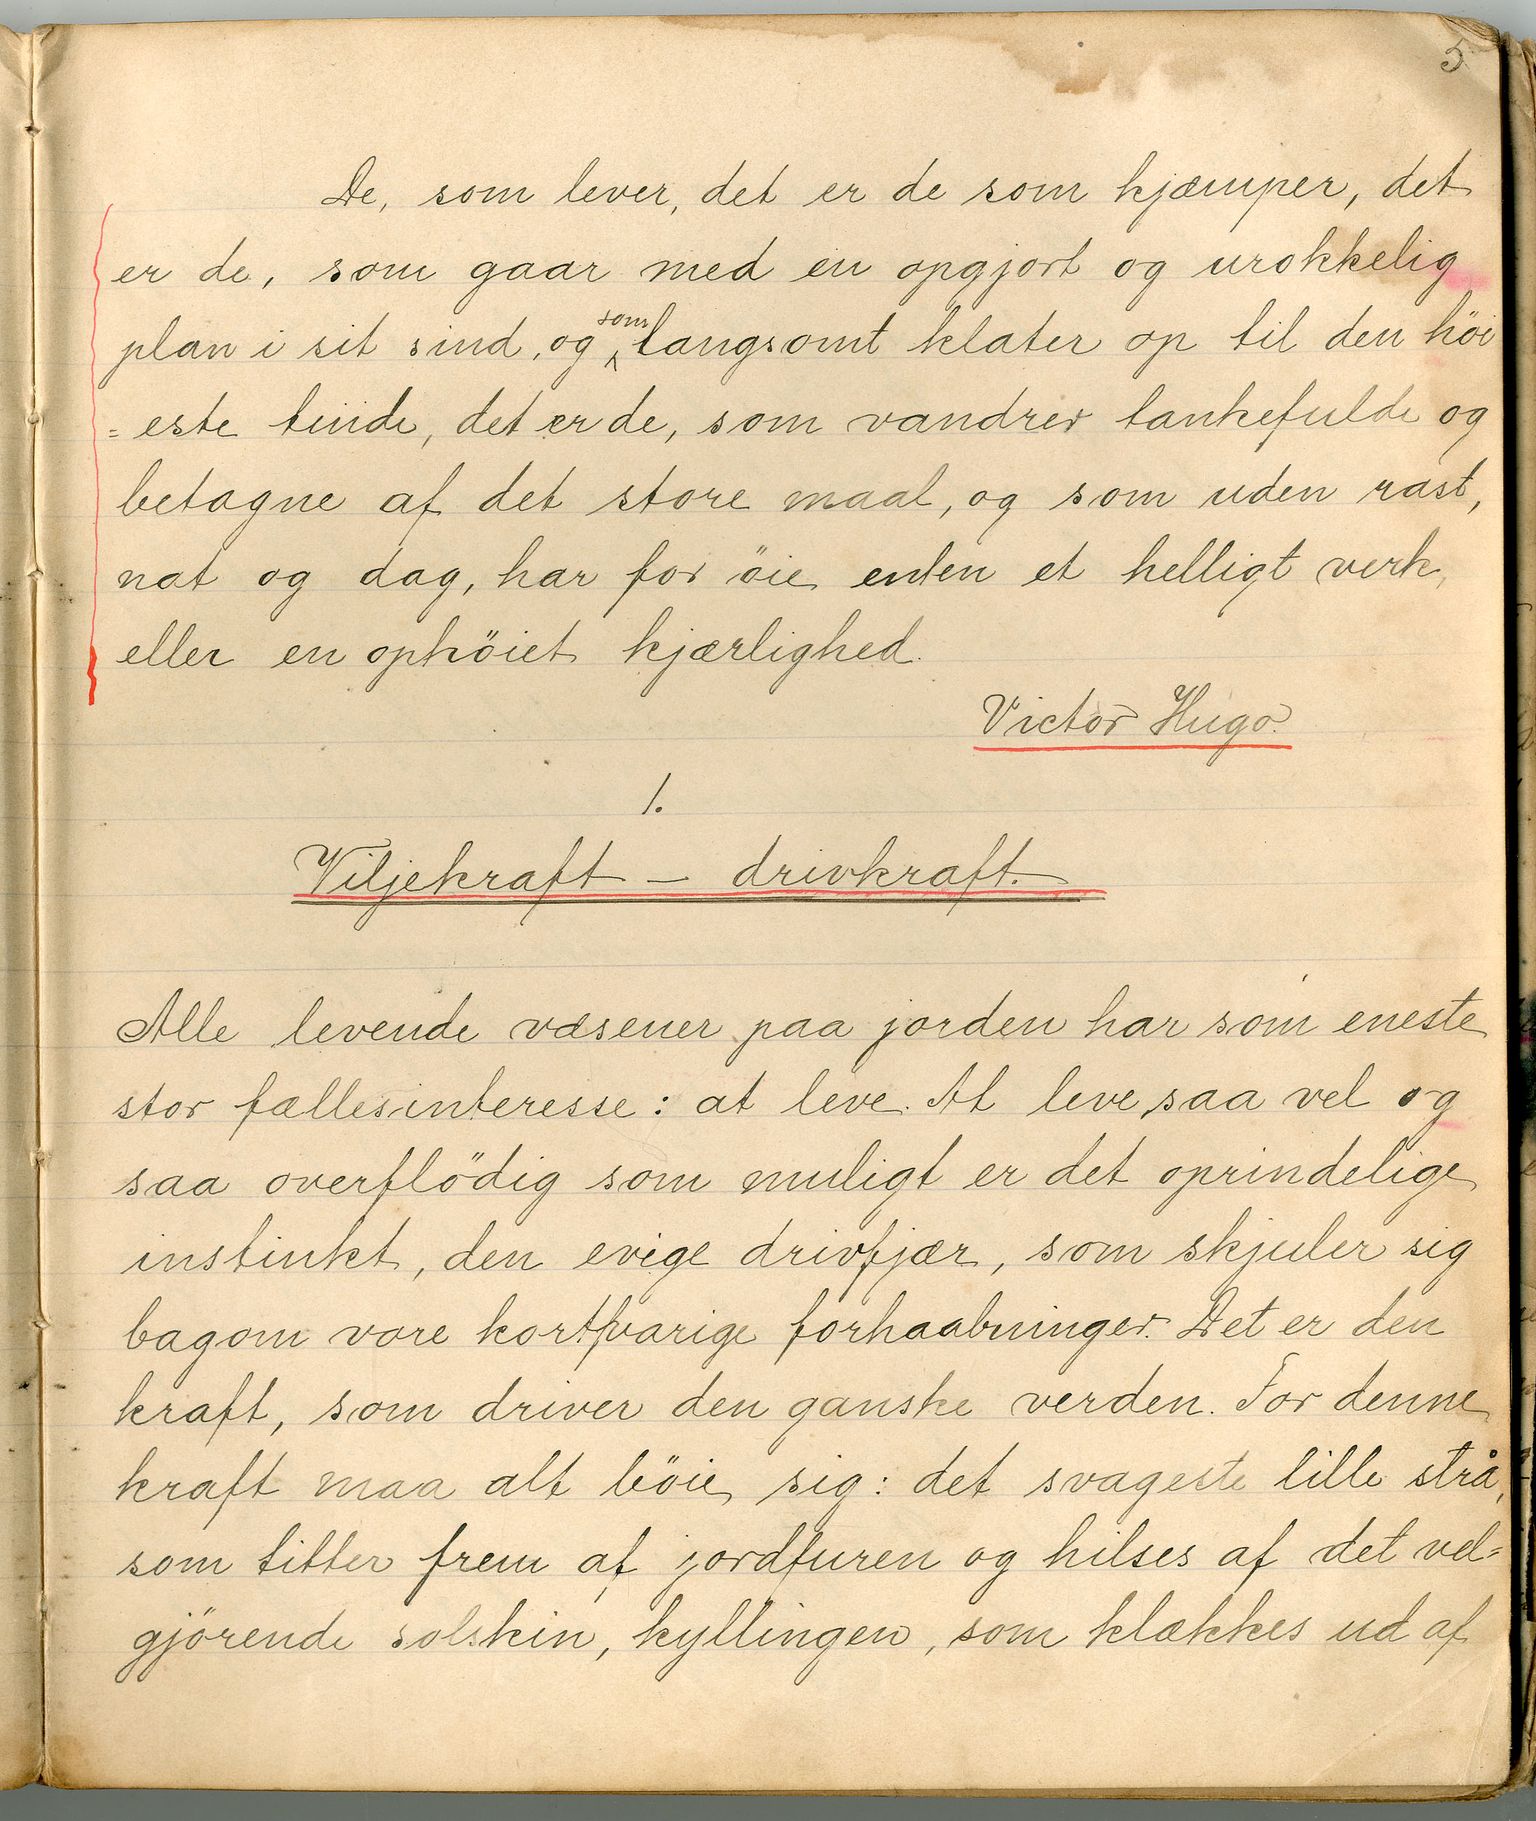 5
De, som lever, det er de som kjæmper, det
er de, som gaar med en opgjort og urokkelig
plan i sit sind, og som langsomt klater op til den höi
=este tinde, det er de, som vandrer tankefulde og
betagne af det store maal, og som uden rast,
nat og dag, har for öie enten et helligt verk,
eller en ophöiet kjærlighed.
Victor Hugo.
1.
Viljekraft – drivkraft.
Alle levende væsener paa jorden har som eneste
stor fællesinteresse: at leve. At leve saa vel og
saa overflödig som muligt er det oprindelige
instinkt, den evige drivfjær, som skjuler sig
bagom vore kortvarige forhaabninger. Det er den
kraft, som driver den ganske verden. For denne
kraft maa alt böie sig: det svageste lille strå,
som titter frem af jordfuren og hilses af det vel=
gjörende solskin, kyllingen, som klækkes ud af